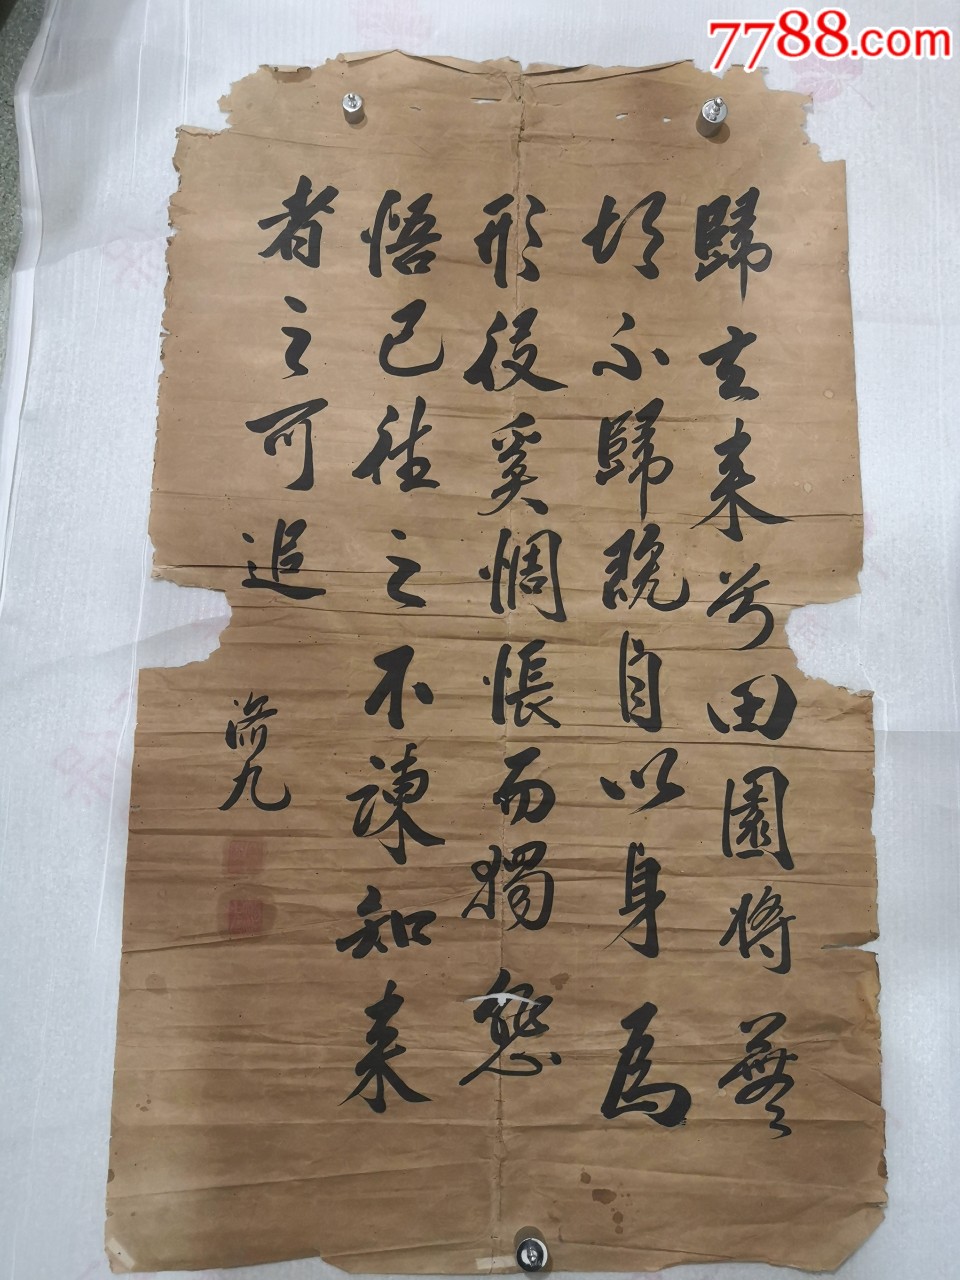 7788.com
歸去来兮田園將蕪
胡不歸既自以身為
形役奚惆悵而獨悲
悟已往之不諫知来
者之可追
九